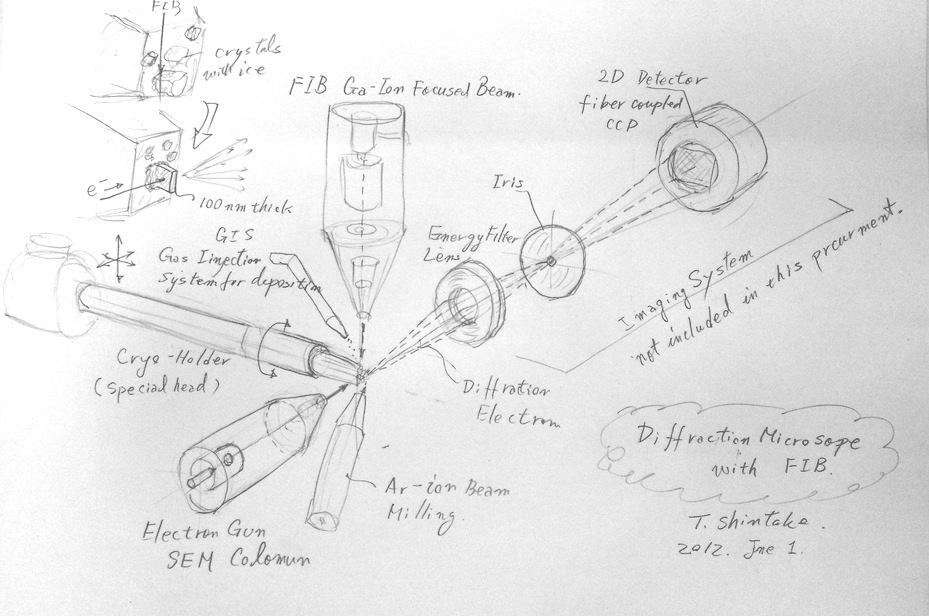 FIB
crystals
with ice
e-
100nm thick
FIB Ga-Ion Focused Beam.
2D Detector
fiber coupled
CCP
Iris
Energy Filter
Lens
GIS
Gas Iinjection
system for deposition
Cryo-Holder
(special head)
Imaging System
not included in this procurment.
Diffration
Electron
Electron Gun
SEM Colomun
Ar-ion Beam
Milling.
Diffraction Microsope
with FIB.
T. Shintake.
2012. Jne 1.